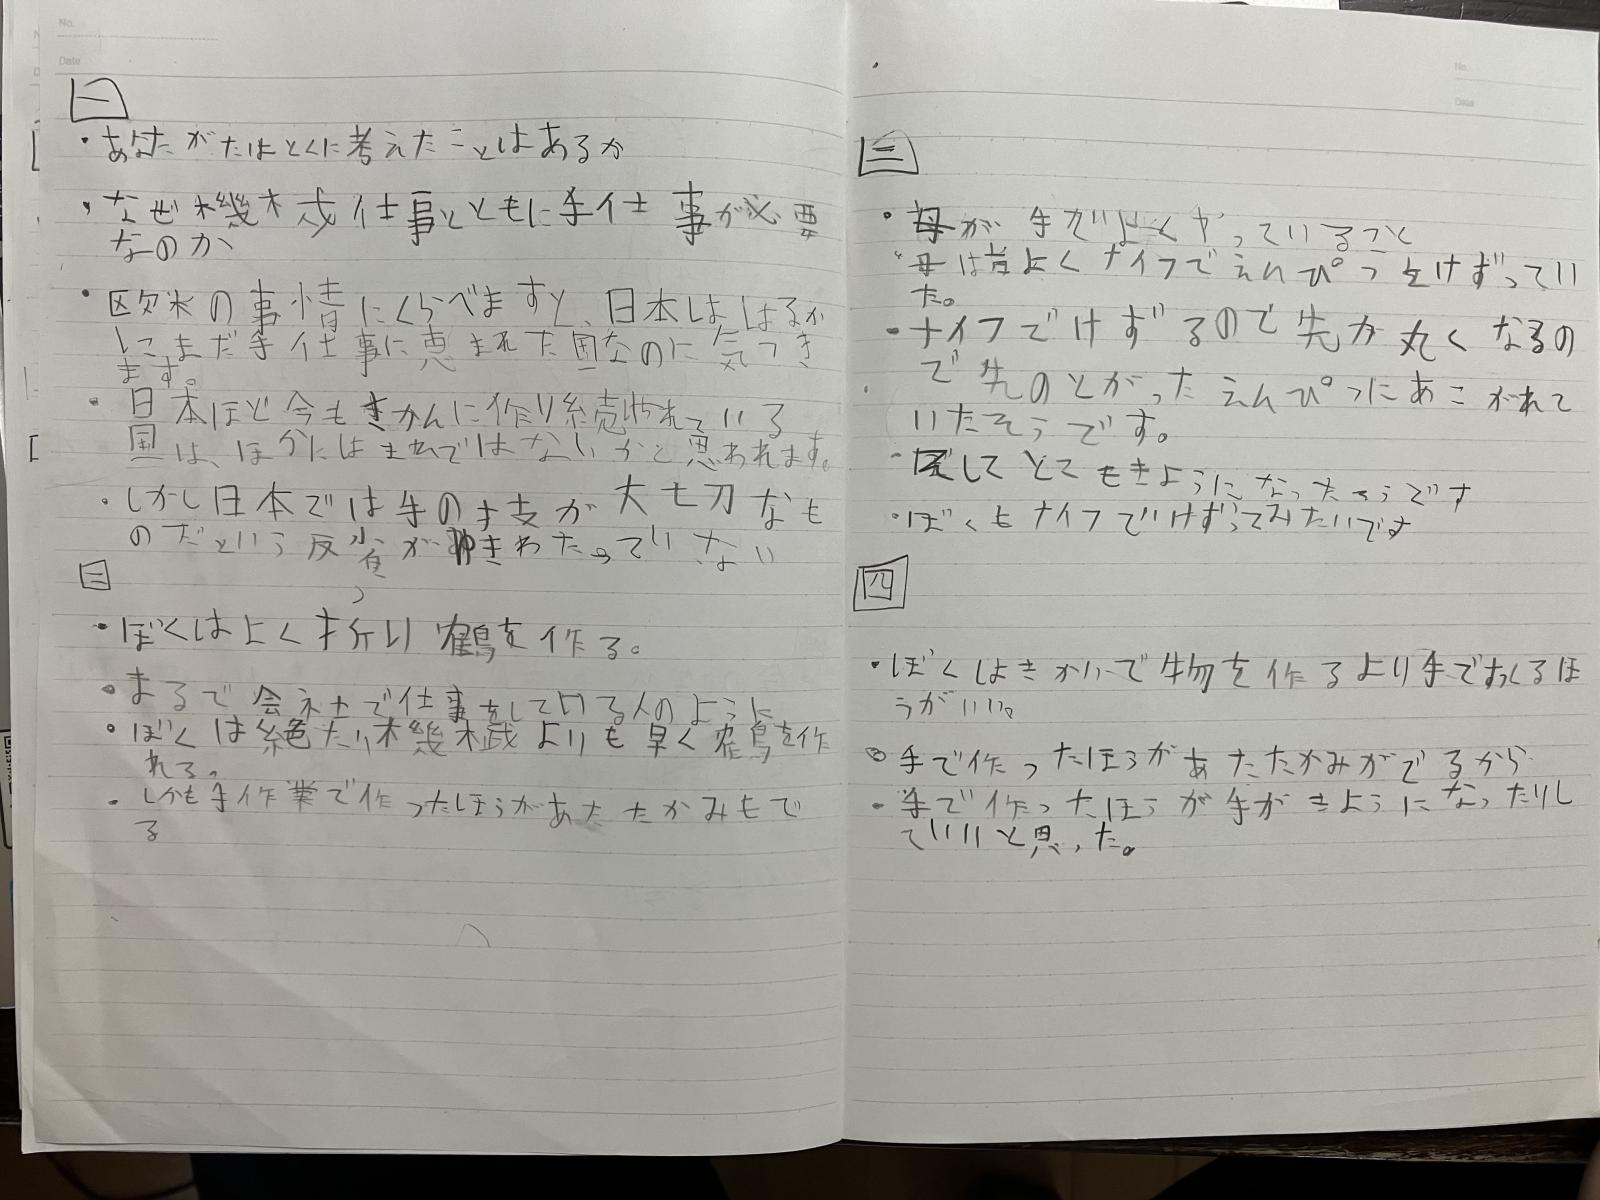 No.
Date
一
・あなたがたはとくに考えたことはあるか
・なぜ機械仕事とともに手仕事が必要
なのか
・欧米の事情にくらべますと、日本ははるか
にまだ手仕事に恵まれた国なのに気づき
ます。
・日本ほど今もさかんに作り続けられている
国は、ほかにはまれではないかと思われます。
・しかし日本では手の技が大切なも
のだという反省がゆきわたっていない
二
・ぼくはよく折り鶴を作る。
・まるで会社で仕事をしている人のように
・ぼくは絶たい機械よりも早く鶴を作
れる。
・しかも手作業で作ったほうがあたたかみもで
る
No.
Date
三
・母が手でよくやっていること
・母は昔よくナイフでえんぴつをけずってい
た。
・ナイフでけずるので先が丸くなるの
で先のとがったえんぴつにあこがれて
いたそうです。
してとてもきようになったそうです
・ぼくもナイフでけずってみたいです
四
・ぼくはきかいで物を作るより手でおくるほ
うがいい。
・手で作ったほうがあたたかみがでるから
・手で作ったほうが手がきようになったりし
ていいと思った。